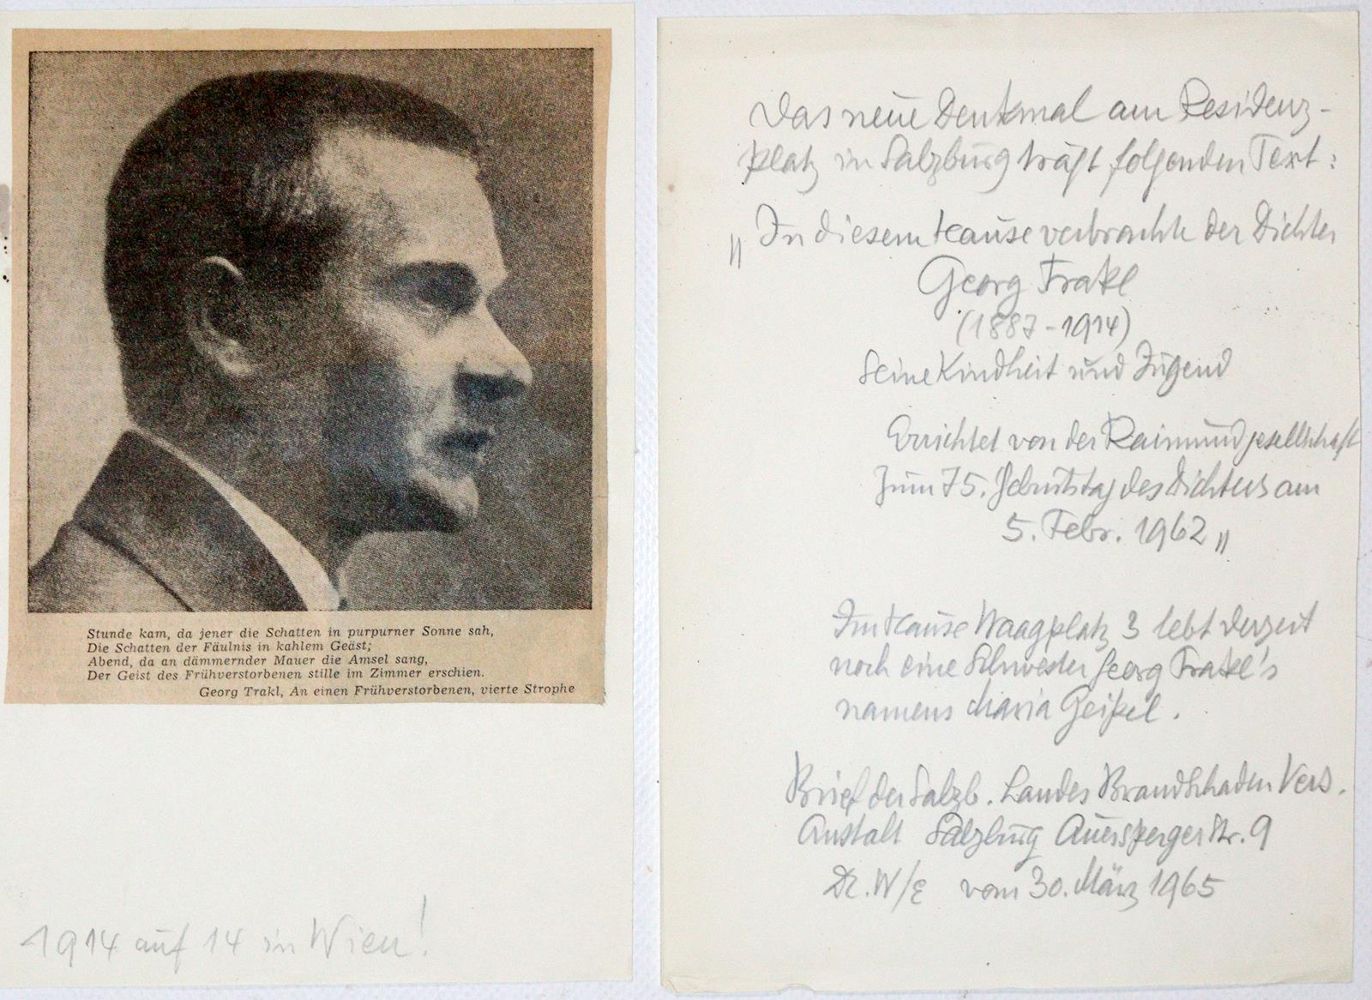 Stunde kam, da jener die Schatten in purpurner Sonne sah,
Die Schatten der Fäulnis in kahlem Geäst;
Abend, da an dämmernder Mauer die Amsel sang,
Der Geist des Frühverstorbenen stille im Zimmer erschien.
Georg Trakl, An einen Frühverstorbenen, vierte Strophe
1914 auf 14 in Wien!
Das neue Denkmal am Residenz-
platz in Salzburg trägt folgenden Text:
„In diesem Hause verbrachte der Dichter
Georg Trakl
(1887-1914)
seine Kindheit und Jugend
Errichtet von der Raimundgesellschaft
zum 75. Geburtstag des Dichters am
5. Febr. 1962"
Im Hause Waagplatz 3 lebt derzeit
noch eine Schwester Georg Trakl's
namens Maria Geipel.
Brief der Salzb. Landes Brandschaden Vers.
Anstalt Salzburg Auerspergerstr. 9
Dr. W/E vom 30. März 1965